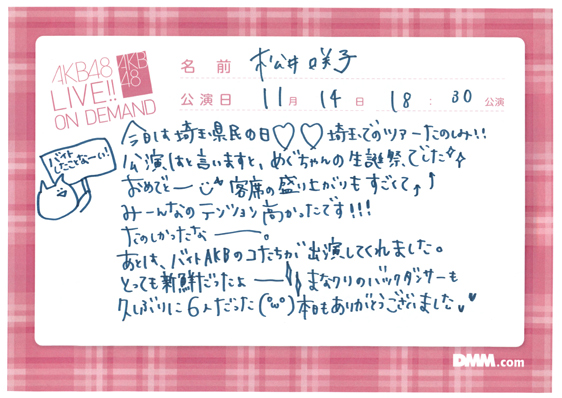 AKB48
LIVE!!
ON DEMAND
AKB
48
名前 松井咲子
公演日 11月 14日 18:30 公演
今日は埼玉県民の日♡♡埼玉でのツアーたのしみ!!
公演はと言いますと、めぐちゃんの生誕祭でした☆☆
おめでとー 客席の盛り上がりもすごくて↑↑
みーんなのテンション高かったです!!!
たのしかったなー。
あとは、バイトAKBのコたちが出演してくれました。
とっても新鮮だったよー まなクリのバックダンサーも
久しぶりに6人だった(°ω°)本日もありがとうございました♥
バイト
したことなーい!
DMM.com